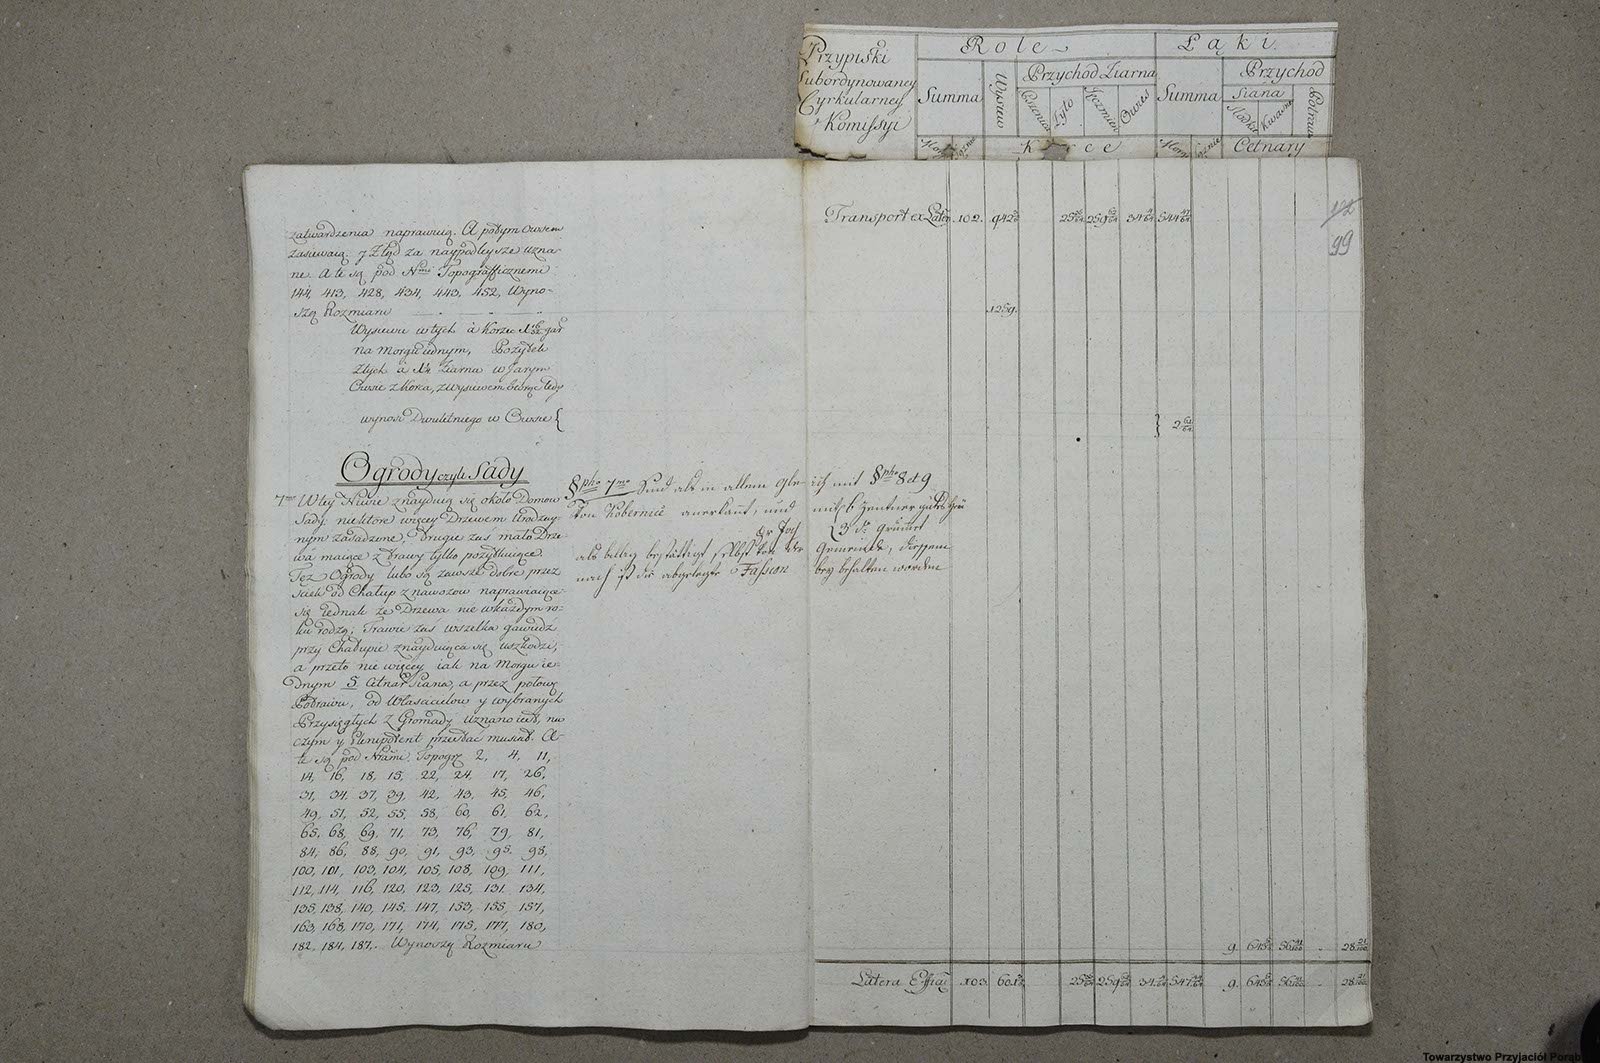 Przypiski
Subordynowaney
Cyrkularney
Komissyi
Role
Łąki
Summa
Wysiew
Przychod Ziarna
Pszenica
Żyto
Jęczmien
Owies
Summa
Przychod
Siana
Słodkie
Kwaśne
Potraw
Cetnary
zatwardzenia naprawuią. A potym Owsem
zasiewaią. y Złęd za naypodleysze uzna-
ne. A te są pod Nrmi Topograficznemi
144, 413, 428, 434, 443, 452, Wyno-
szą Rozmiaru
Wysiewu w tych à Korzec
na Morgu iednym, Pożytek
Złych à Ziarna w Jarym
Owsie z Korca, z wysiewem biorąc tedy
wynosi Dwuletniego w Owsie
Ogrody czyli Sady
7mo W tey Niwie znayduią się około Domow
Sady, niektóre więcey Drzewem Urodzay-
nym zasadzone, drugie zaś mało Drze-
wa maiące z trawy tylko pożytkuiące.
Też Ogrody lubo są zawsze dobre przez
ściek od Chałup z nawozow naprawiaiące
się iednak że Drzewa nie w każdym ro-
ku rodzą; Trawie zaś wszelka gawiedz
przy Chałupie znayduiąca się uszkodzi,
a przeto nie więcey iak na Morgu ie-
dnym 5 Cetnar Siana, a przez połowę
Potrawu, od Własicielow y wybranych
Przysięgłych z Gromady uznano iest, na
czym y Plenipotent przestać musiał. A-
te są pod Nrami Topogr. 2, 4, 11,
14, 16, 18, 15, 22, 24, 17, 26,
31, 34, 37, 39, 42, 43, 45, 46,
49, 51, 52, 55, 58, 60, 61, 62,
65, 68, 69, 71, 73, 76, 79, 81,
84, 86, 88, 90, 91, 93, 95, 98,
100, 101, 103, 104, 105, 108, 109, 111,
112, 114, 116, 120, 123, 125, 131, 134,
135, 138, 140, 145, 147, 153, 155, 157,
163, 168, 170, 171, 174, 175, 177, 180,
182, 184, 187, Wynoszą Rozmiaru
§pho 7mo Sind als in allem gleich mit §pho 8 et 9
von Kobernice anerkannt, und mit 6 Zentner
3 dto Grummet
als billig bestättigt selbst von der Gemeinde, diesem
nach ist die abgelegte Fassion bey behalten worden
Transport ex Latere 102. 942 25 259 34 544
112
99
1259.
2 62/64
9. 645 56 41/100 - 28 21/100
Latera Effiat 103. 601 25 259 34 547 9. 645 56 28
Towarzystwo Przyjaciół Porąb